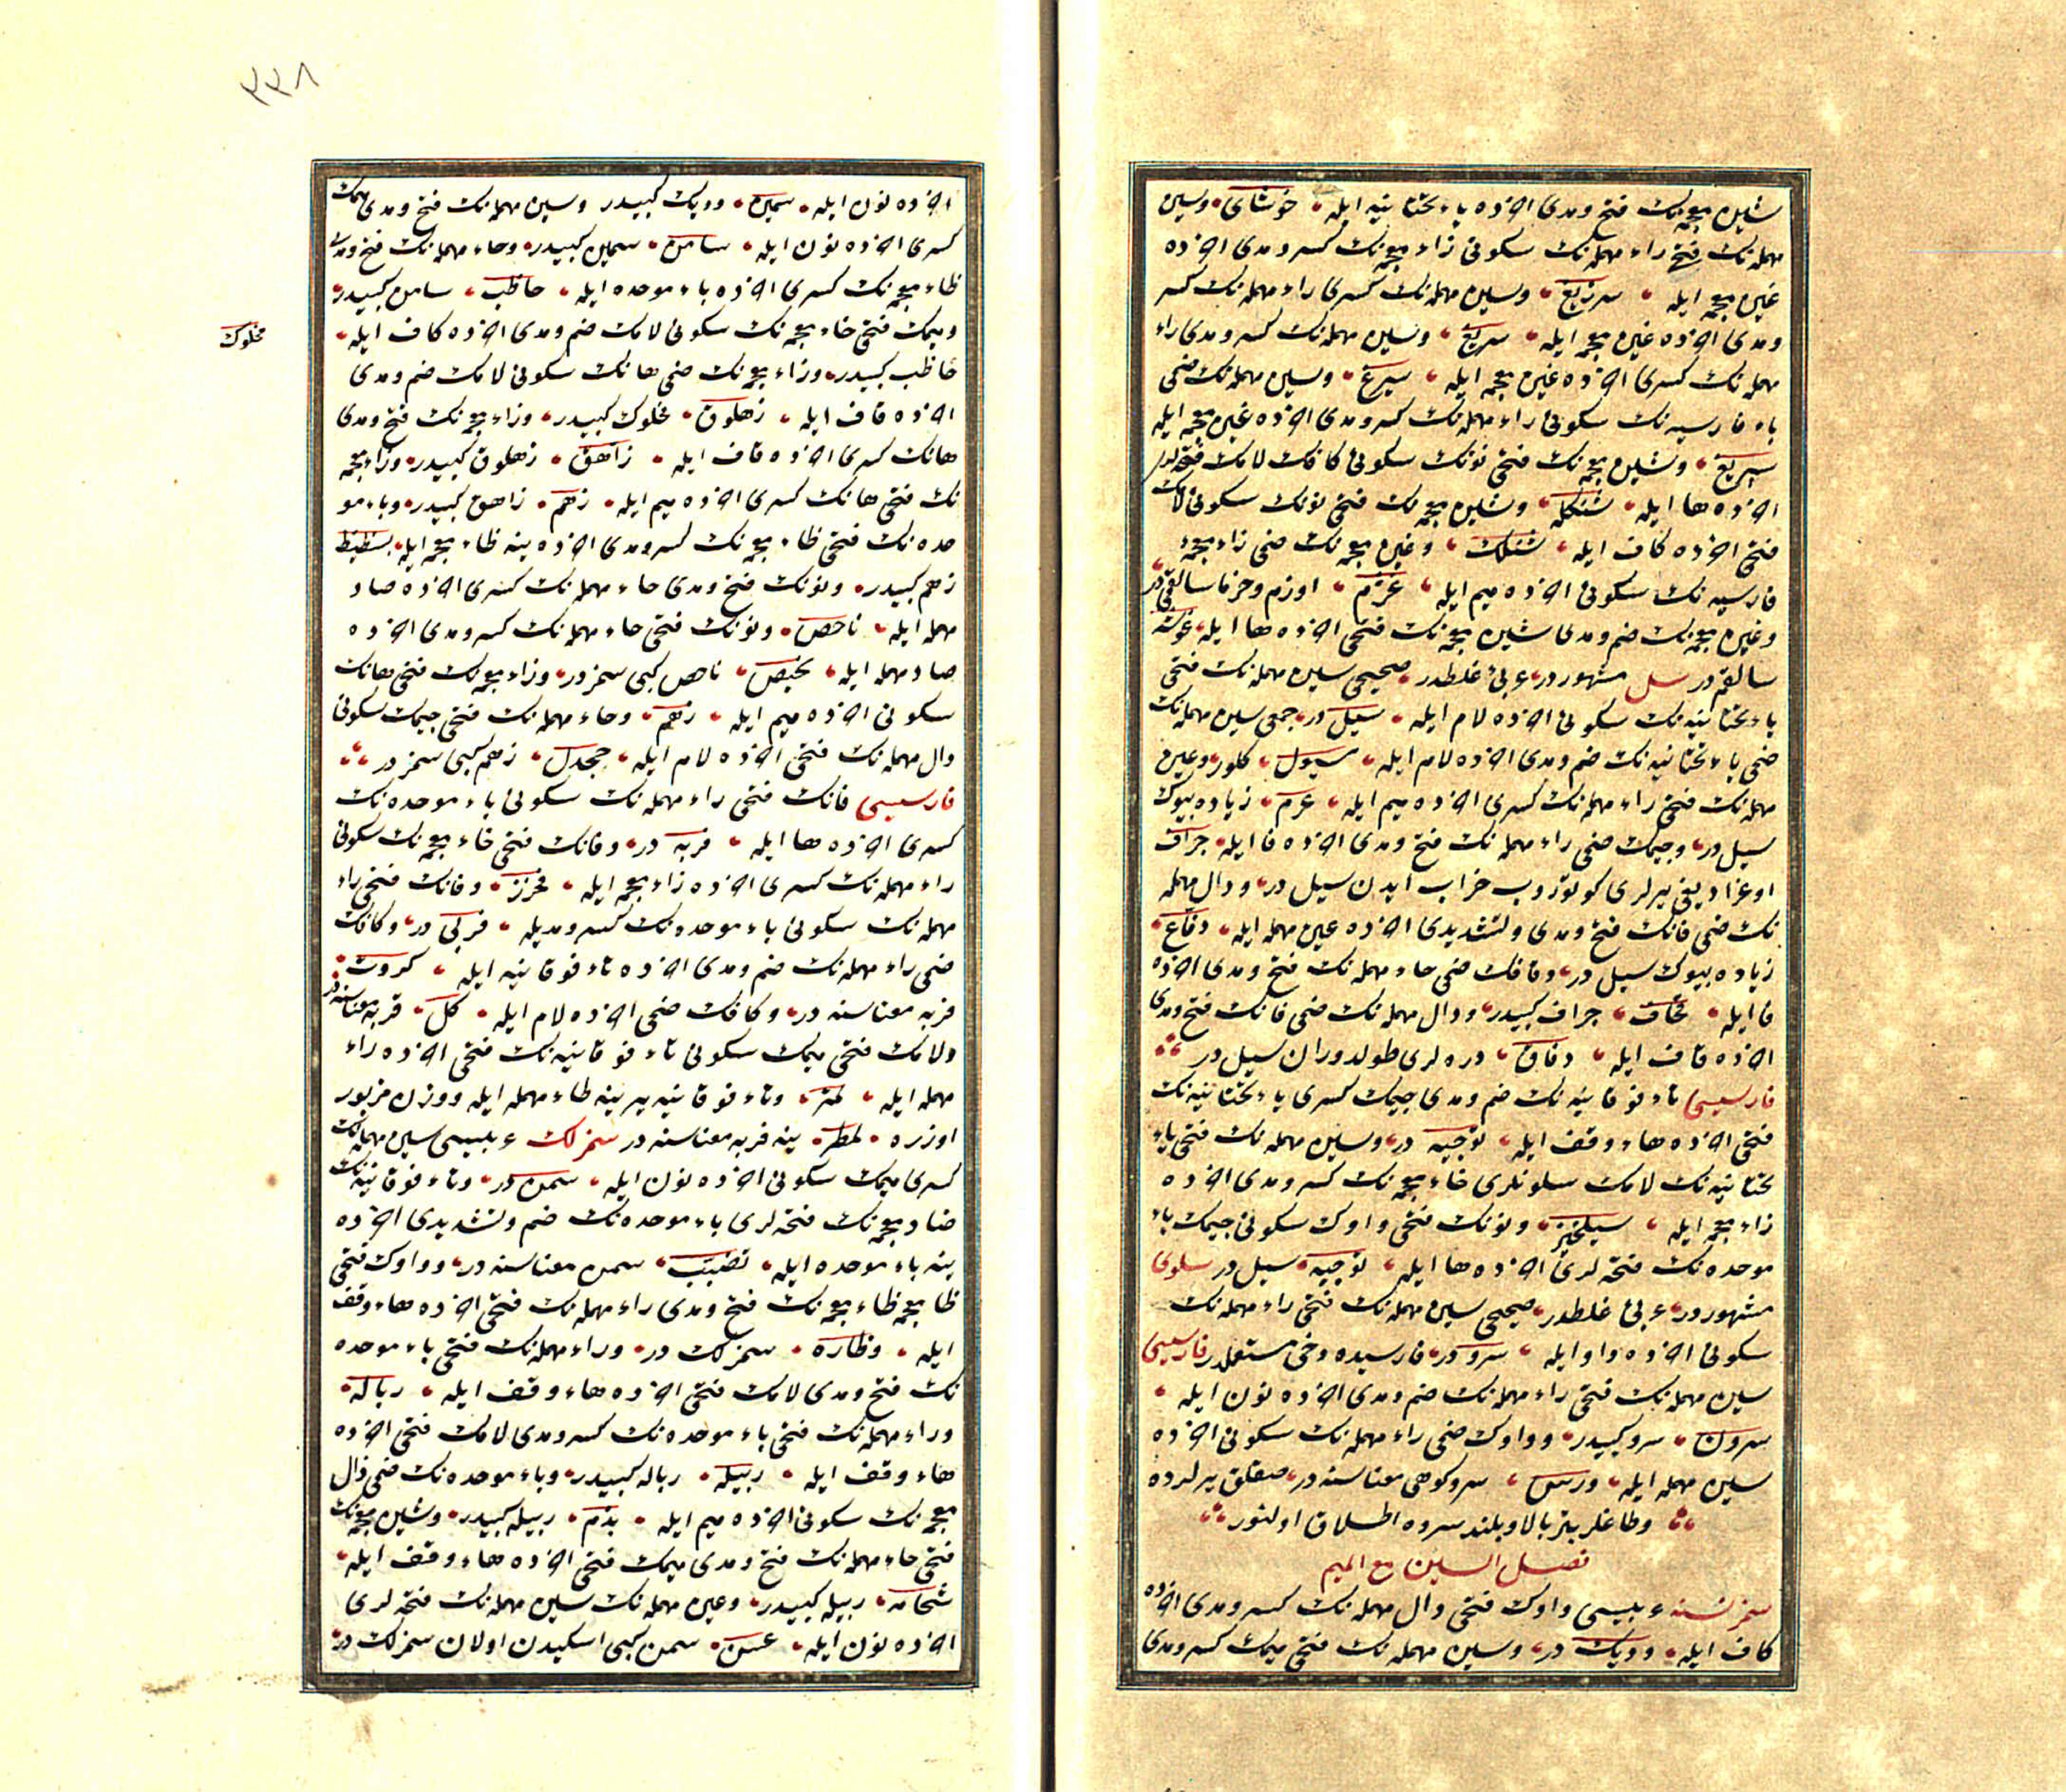 شین معجمه‌نک فتح ومدی اخرده یاء تحتانیه ایله خوشای وسین
مهمله‌نک فتحی راء مهمله‌نک سکونی زاء معجمه‌نک کسر ومدی اخرده
غین معجمه ایله سرزیغ وسین مهمله‌نک کسری راء مهمله‌نک کسر
ومدی اخرده غین معجمه ایله سریغ وسین مهمله‌نک کسر ومدی راء
مهمله‌نک کسری اخرده غین معجمه ایله سیرغ وسین مهمله‌نک ضمی
باء فارسیه‌نک سکونی راء مهمله‌نک کسر ومدی اخرده غین معجمه ایله
سپریغ وشین معجمه‌نک فتحی نونک سکونی کافک لامک فتحه‌لری
اخرده ها ایله شنکله وشین معجمه‌نک فتحی نونک سکونی لامک
فتحی اخرده کاف ایله شنلک وغین معجمه‌نک ضمی زاء معجمه
فارسیه‌نک سکونی اخرده میم ایله غژم اوزم وخرما سالقمی در
وغین معجمه‌نک ضم ومدی شین معجمه‌نک فتحی اخرده ها ایله غوشه
سالقم در سل مشهوردر عربی غلطدر صحیحی سین مهمله‌نک فتحی
یاء تحتانیه‌نک سکونی اخرده لام ایله سیل در جمعی سین مهمله‌نک
ضمی یاء تحتانیه‌نک ضم ومدی اخرده لام ایله سیول کلور وعین
مهمله‌نک فتحی راء مهمله‌نک کسری اخرده میم ایله عرم زیاده بیوک
سیل در وجیمک ضمی راء مهمله‌نک فتح ومدی اخرده فا ایله جراف
اوغرادیغی یرلری کوتوروب خراب ایدن سیل در ودال مهمله
نک ضمی فانک فتح ومدی وتشدیدی اخرده عین مهمله ایله دفاع
زیاده بیوک سیل در وقافک ضمی حاء مهمله‌نک فتح ومدی اخرده
فا ایله قحاف جراف کبیدر ودال مهمله‌نک ضمی فانک فتح ومدی
اخرده قاف ایله دفاق دره‌لری طولدوران سیل در
فارسیسی تاء فوقانیه‌نک ضم ومدی جیمک کسری یاء تحتانیه‌نک
فتحی اخرده هاء وقف ایله توجیه در وسین مهمله‌نک فتحی یاء
تحتانیه‌نک لامک سکونلری خاء معجمه‌نک کسر ومدی اخرده
زاء معجمه ایله سیلخیز ونونک فتحی واوک سکونی جیمک باء
موحده‌نک فتحه‌لری اخرده ها ایله نوجبه سیل در سلوی
مشهوردر عربی غلطدر صحیحی سین مهمله‌نک فتحی راء مهمله‌نک
سکونی اخرده واو ایله سرو در فارسیده دخی مستعملدر فارسیسی
سین مهمله‌نک فتحی راء مهمله‌نک ضم ومدی اخرده نون ایله
سرون سرو کبیدر وواوک ضمی راء مهمله‌نک سکونی اخرده
سین مهمله ایله ورس سرو کوهی معناسنه در صقلق یرلرده
وطاغلر بتر بالا وبلند سروه اطلاق اولنور
فصل السین مع المیم
سمز نسنه عربیسی واوک فتحی دال مهمله‌نک کسر ومدی اخرده
کاف ایله ودیک در وسین مهمله‌نک فتحی میمک کسر ومدی
٢٢٨
اخرده نون ایله سمین ودیک کبیدر وسین مهمله‌نک فتح ومدی میمک
کسری اخرده نون ایله سامن سمین کبیدر وحاء مهمله‌نک فتح ومدی
ظاء معجمه‌نک کسری اخرده باء موحده ایله حاظب سامن کبیدر
ومیمک فتحی خاء معجمه‌نک سکونی لامک ضم ومدی اخرده کاف ایله
مخلوک
حاظب کبیدر وزاء معجمه‌نک ضمی هانک سکونی لامک ضم ومدی
اخرده قاف ایله زهلوق مخلوک کبیدر وزاء معجمه‌نک فتح ومدی
هانک کسری اخرده قاف ایله زاهق زهلوق کبیدر وزاء معجمه
نک فتحی هانک کسری اخرده میم ایله زهم زاهق کبیدر وباء مو
حده‌نک فتحی ظاء معجمه‌نک کسر ومدی اخرده ینه ظاء معجمه ایله بظیظ
زهم کبیدر ونونک فتح ومدی حاء مهمله‌نک کسری اخرده صاد
مهمله ایله ناحص ونونک فتحی حاء مهمله‌نک کسر ومدی اخرده
صاد مهمله ایله نحیص ناحص کبی سمزدر وزاء معجمه‌نک فتحی هانک
سکونی اخرده میم ایله زهم وحاء مهمله‌نک فتحی جیمک سکونی
دال مهمله‌نک فتحی اخرده لام ایله حجدل زهم کبی سمزدر
فارسیسی فانک فتحی راء مهمله‌نک سکونی باء موحده‌نک
کسری اخرده ها ایله فربه در وفانک فتحی خاء معجمه‌نک سکونی
راء مهمله‌نک کسری اخرده زاء معجمه ایله فخرز وفانک فتحی راء
مهمله‌نک سکونی باء موحده‌نک کسر ومدیله فربی در وکافک
ضمی راء مهمله‌نک ضم ومدی اخرده تاء فوقانیه ایله کروت
فربه معناسنه در وکافک ضمی اخرده لام ایله کل فربه معناسنه در
ولامک فتحی میمک سکونی تاء فوقانیه‌نک فتحی اخرده راء
مهمله ایله لمتر وتاء فوقانیه یرینه طاء مهمله ایله ووزن مزبور
اوزره لمطر ینه فربه معناسنه در سمزلک عربیسی سین مهمله‌نک
کسری میمک سکونی اخرده نون ایله سمن در وتاء فوقانیه‌نک
ضاد معجمه‌نک فتحه‌لری باء موحده‌نک ضم وتشدیدی اخرده
ینه باء موحده ایله تضبب سمن معناسنه در وواوک فتحی
ظا معجمه ظاء معجمه‌نک فتح ومدی راء مهمله‌نک فتحی اخرده هاء وقف
ایله وظاره سمزلک در وراء مهمله‌نک فتحی باء موحده
نک فتح ومدی لامک فتحی اخرده هاء وقف ایله رباله
وراء مهمله‌نک فتحی باء موحده‌نک کسر ومدی لامک فتحی اخرده
هاء وقف ایله ربیله رباله کبیدر وباء موحده‌نک ضمی ذال
معجمه‌نک سکونی اخرده میم ایله بذم ربیله کبیدر وشین معجمه‌نک
فتحی حاء مهمله‌نک فتح ومدی میمک فتحی اخرده هاء وقف ایله
شحامه ربیله کبیدر وعین مهمله‌نک سین مهمله‌نک فتحه‌لری
اخرده نون ایله عسن سمن کبی اسکیدن اولان سمزلک در